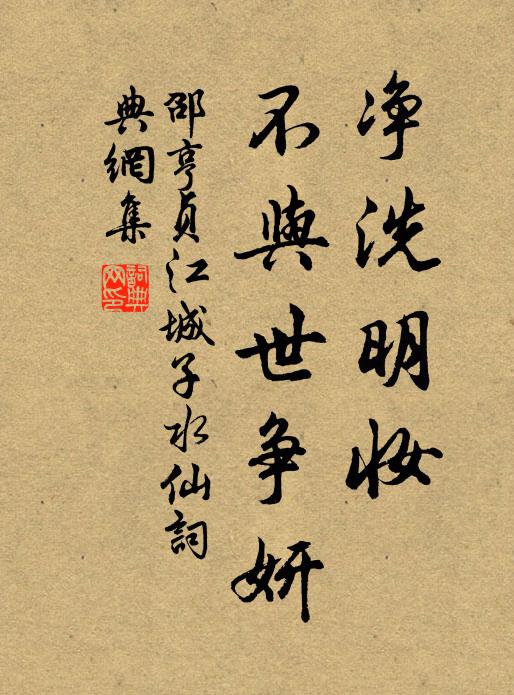 净洗明妆
不與世争妍
邵亨貞江城子水仙詞
典網集
詞典網印